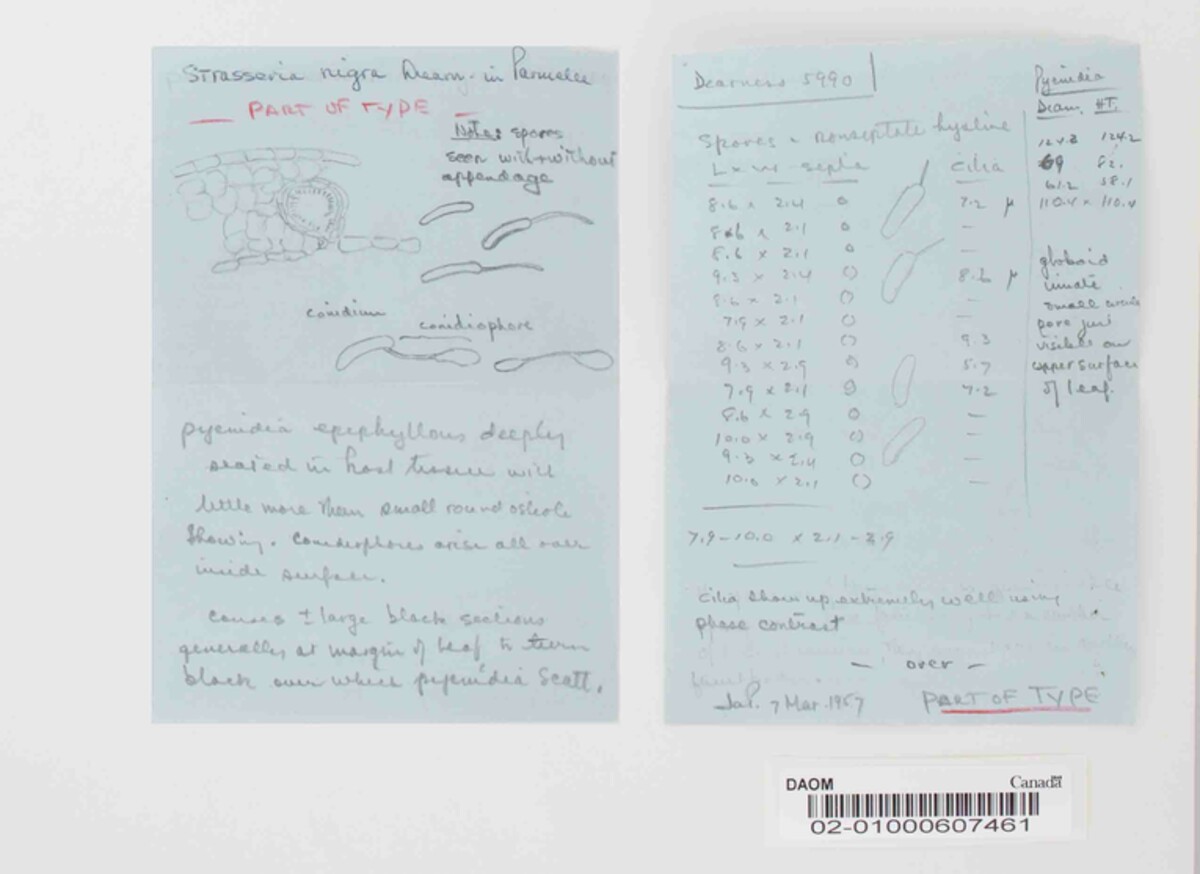 Strasseria nigra Dearn. in Parmelee
PART OF TYPE
Note: spores
seen with + without
appendage
conidium
conidiophore
pycnidia epiphyllous deeply
seated in host tissue with
little more than small round ostiole
showing. Conidiophores arise all over
inside surface.
causes ± large black sections
generally at margin of leaf to turn
black over which pycnidia scatt.
Dearness 5990
Spores - nonseptate hyaline
L × w - septa cilia
8.6 × 2.4 0 7.2 µ
8.6 × 2.1 0 —
8.6 × 2.1 0 —
9.3 × 2.4 0 8.6 µ
8.6 × 2.1 0 —
7.9 × 2.1 0 —
8.6 × 2.1 0 9.3
9.3 × 2.9 0 5.7
7.9 × 2.1 0 7.2
8.6 × 2.9 0 —
10.0 × 2.9 0 —
9.3 × 2.4 0 —
10.0 × 2.1 0 —
7.9-10.0 × 2.1-2.9
cilia show up extremely well using
phase contrast
— over —
7 Mar. 1957
PART OF TYPE
Pycnidia
Diam. HT.
124.2
69 62.
61.2 58.1
110.4 × 110.4
globoid
small
pore just
visible on
upper surface
of leaf.
DAOM Canada
02-01000607461